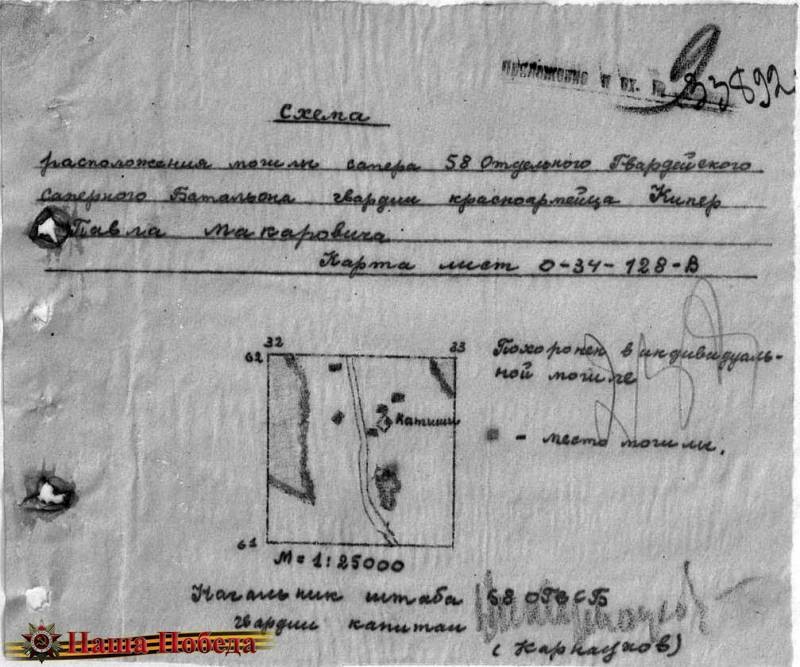 приложение к вх. №
33892
Схема
расположения могилы сапера 58 Отдельного Гвардейского
саперного Батальона гвардии красноармейца Кипер
Павла Макаровича
Карта лист О-34-128-В
32 33
62
Похоронен в индивидуаль-
ной могиле
Катыши
- место могилы.
61
М = 1:25000
Начальник штаба 58 ОГСБ
гвардии капитан
(Карнаухов)
Наша Победа